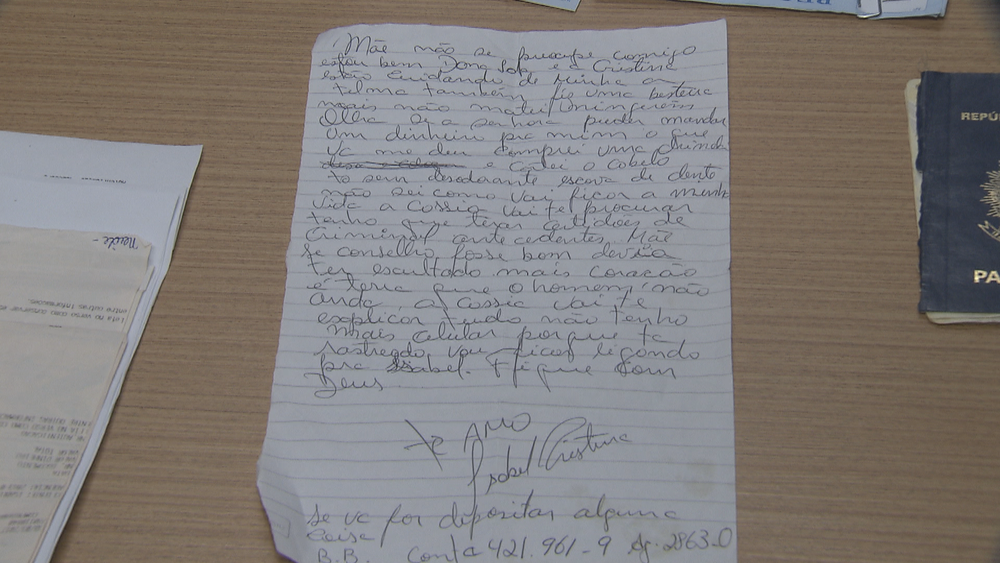 Mãe não se procupe comigo
estou bem Dona Sol e a Cristina
estão cuidando de minha a
telma também fis uma besteira
mais não matei ninguém
Olha se a senhora puder mandar
um dinheiro pra mim o que
vc me deu comprei uma
e cortei o cabelo
to sem desodorante escova de dente
não sei como vai ficar a minha
vida a Cassia vai te procurar
tenho que tirar certidões de
Criminal antecedentes Mãe
se conselho fosse bom devia
ter escultado mais coração
é terra que o homem não
anda a Cassia vai te
esplicar tudo não tenho
mais celular porque ta
rastreado vou ficar ligando
pra Isabel. Fique com
Deus
Te AMO
Isabel Cristina
se vc for depositar alguma
Coisa
B.B. Conta 421.961-9 Ag. 2863-0
Neide -
entre outras informações.
REPÚ
PA